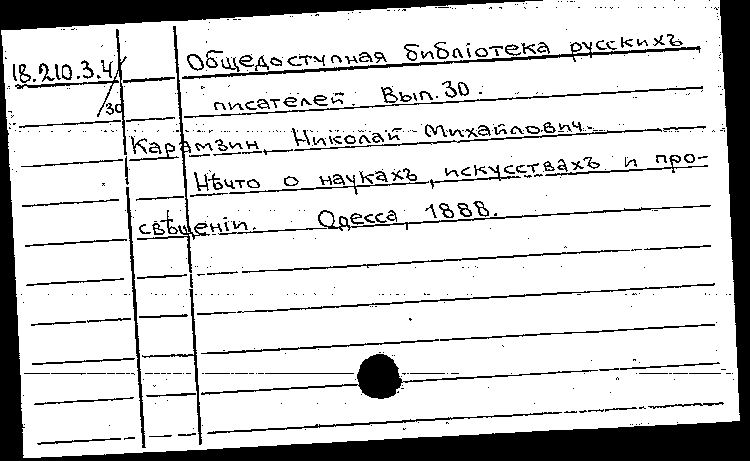 18.210.3.4/30
Общедоступная библіотека русскихъ
писателей. Вып. 30.
Карамзин, Николай Михайлович.
Нѣчто о наукахъ, искусствахъ и про-
свѣщеніи. Одесса, 1888.